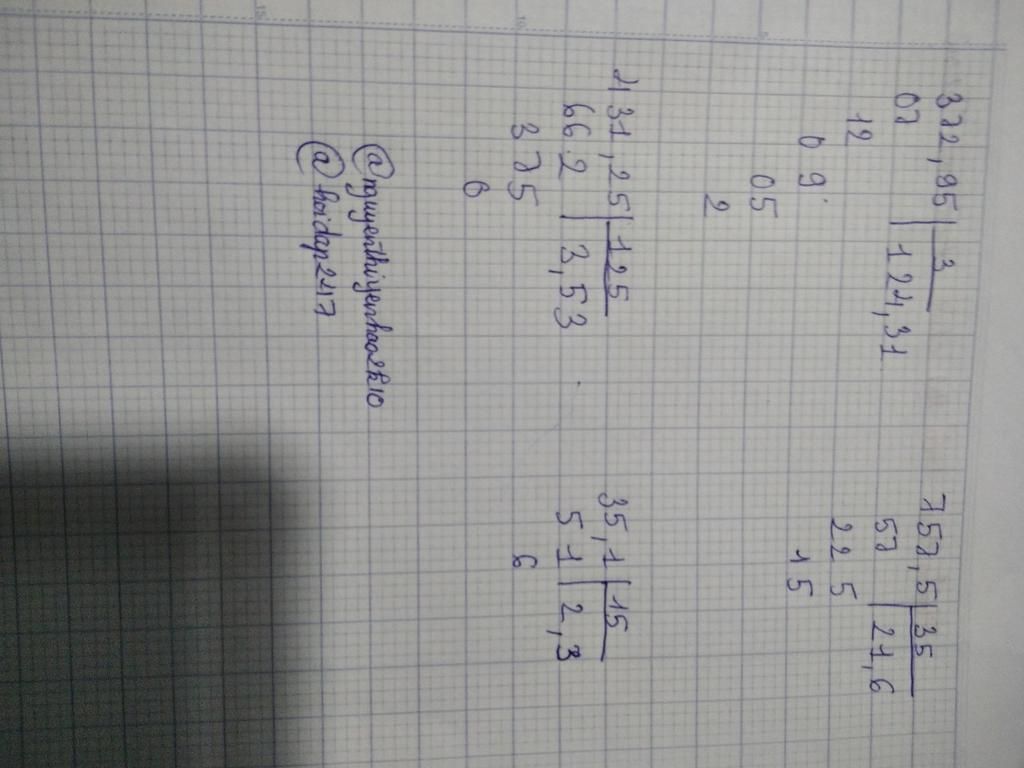 372,95 | 3
07 | 124,31
12
09
05
2
757,5 | 35
57 | 21,6
22 5
15
431,25 | 125
66 2 | 3,53
3 75
0
35,1 | 15
5 1 | 2,3
6
@nguyenthiyenhao2k10
@hoidap247